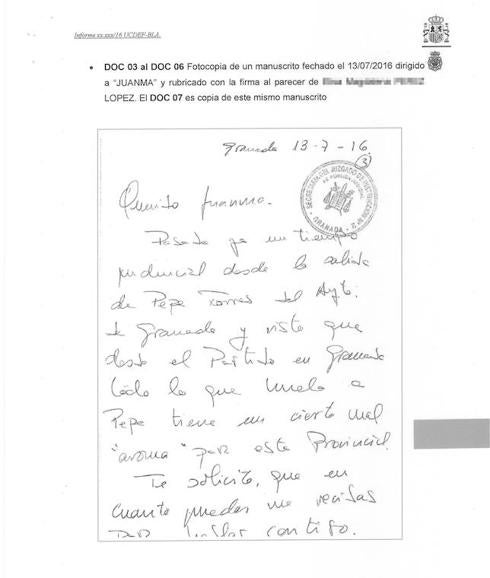 Informe xx.xxx/16 UCDEF-BLA.
• DOC 03 al DOC 06 Fotocopia de un manuscrito fechado el 13/07/2016 dirigido
a "JUANMA" y rubricado con la firma al parecer de
LOPEZ. El DOC 07 es copia de este mismo manuscrito
Granada 13-7-16
3
SECRETARIA DEL JUZGADO DE INSTRUCCION Nº 2
GRANADA
Querido Juanma.
Pasado ya un tiempo
prudencial desde la salida
de Pepe Torres del Ayto.
de Granada y visto que
desde el Partido en Granada
todo lo que huela a
Pepe tiene un cierto mal
"aroma" por este Provincial.
Te solicito, que en
cuanto puedas me recibas
para hablar contigo.